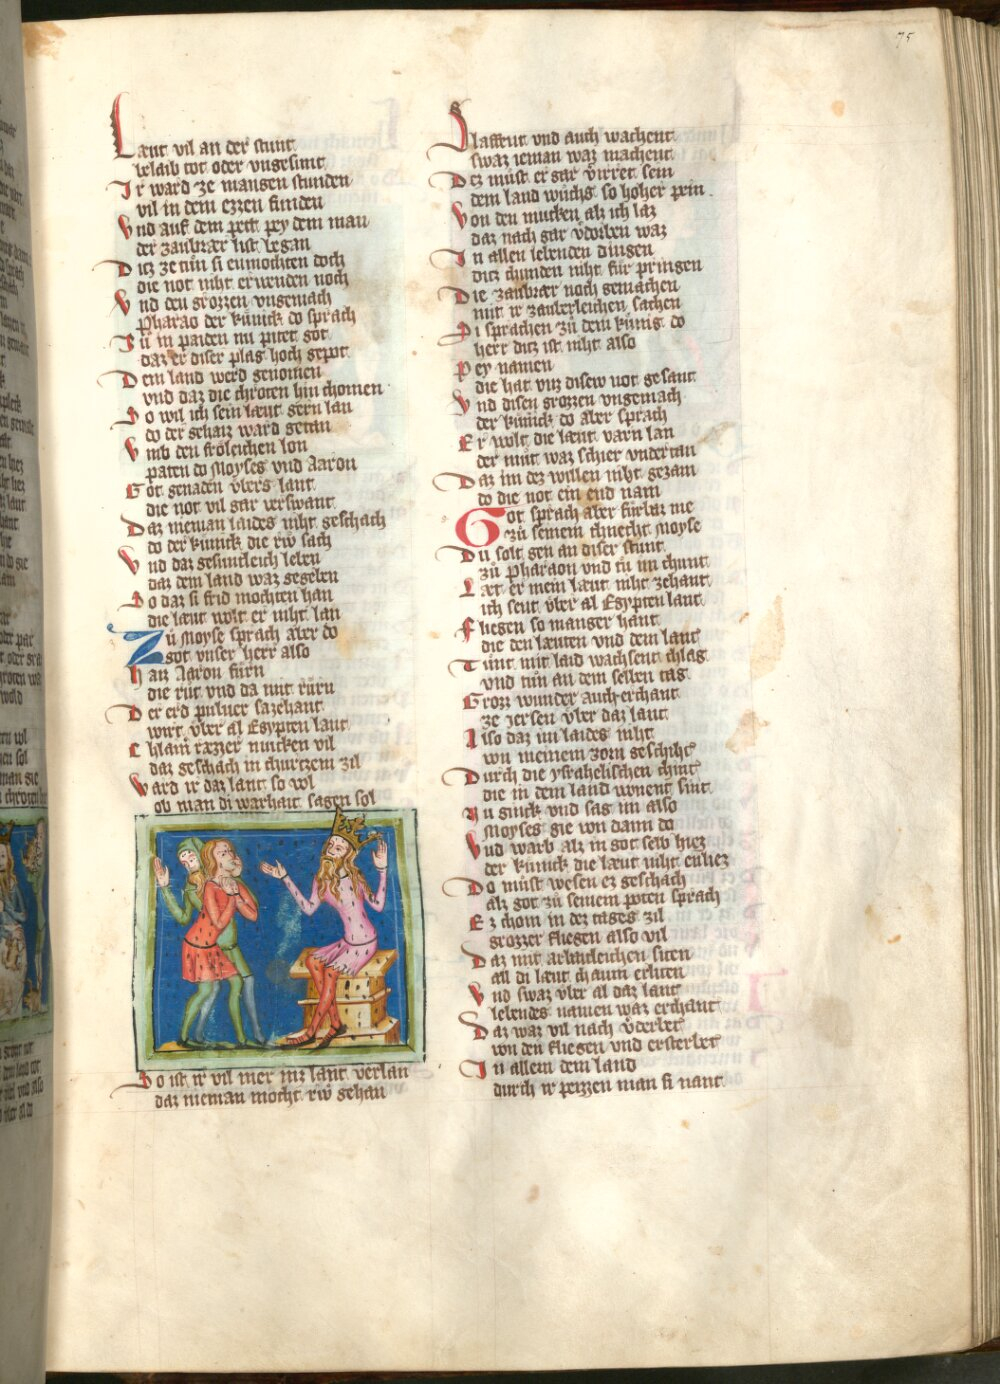 75
Laeut vil an der stunt
belaib tot oder vngesunt
Ir ward ze mangen stunden
vil in dem ezzen funden
Vnd auf dem pett pey dem man
der zaubraer list began
Ditz ze nun si enmochten doch
die not niht erwenden noch
Vnd den grozzen vngemach
Pharao der kunick do sprach
Zu in paiden nu pitet got
daz er diser plag hoch gepot
Dem land werd genomen
vnd daz die chroten hin chomen
So wil ich sein laeut gern lan
do der gehaiz ward getan
Vmb den froleichen lon
paten do Moyses vnd Aaron
Got genaden vbers lant
die not vil gar verswant
Daz nieman laides niht geschach
do der kunick die rw sach
Vnd daz gesuntleich leben
daz dem land waz gegeben
Do daz si frid mochten han
die laeut wolt er niht lan
Zu Moyse sprach aber do
got vnser herr also
Haiz Aaron furn
die rut vnd da mit rurn
Der erd puluer sazehant
wirt vber al Egypten lant
Chlain raezzer mucken vil
daz geschach in churtzem zil
Ward ir daz lant so vol
ob man di warhait sagen sol
So ist ir vil mer inz lant verlan
daz nieman mocht rw gehan
Slaffent vnd auch wachent
swaz ieman waz machent
Dez must er gar virret sein
dem land wuchs so hoher pein
Von den mucken alz ich laz
daz nach gar vdorben waz
In allen lebenden dingen
ditz chunden niht fur pringen
Die zaubraer noch gemachen
mit ir zauberleichen sachen
Si sprachen zu dem kunig do
herr ditz ist niht also
Pey namen
die hat vnz disew not gesant
Vnd disen grozzen vngemach
der kunick do aber sprach
Er wolt die laeut varn lan
der mut waz schier vndertan
Daz im dez willen niht gezam
do die not ein end nam
Got sprach aber furbaz me
zu seinem chnecht Moyse
Du solt gen an diser stunt
zu Pharaon vnd tu im chunt
Laet er mein laeut niht zehant
ich sent vber al Egypten lant
Fliegen so manger hant
die den laeuten vnd dem lant
Tunt mit laid wachsent chlag
vnd tun an dem selben tag
Groz wunder auch erchant
ze Jersen vber daz lant
Also daz im laides niht
von meinem zorn geschiht
Durch die ysrahelischen chint
die in dem land wonent sint
Nu ginck vnd sag im also
Moyses gie von dann do
Vnd warb alz in got selb hiez
der kunick die laeut niht enliez
Do must wesen ez geschach
alz got zu seinem poten sprach
Ez chom in dez tages zil
grozzer fliegen also vil
Daz mit arbaitleichen siten
all di laeut chaum erliten
Vnd swaz vber al daz lant
lebendes namen waz erchant
Daz waz vil nach vderbet
von den fliegen vnd ersterbet
In allem dem land
durch ir peizzen man si nant